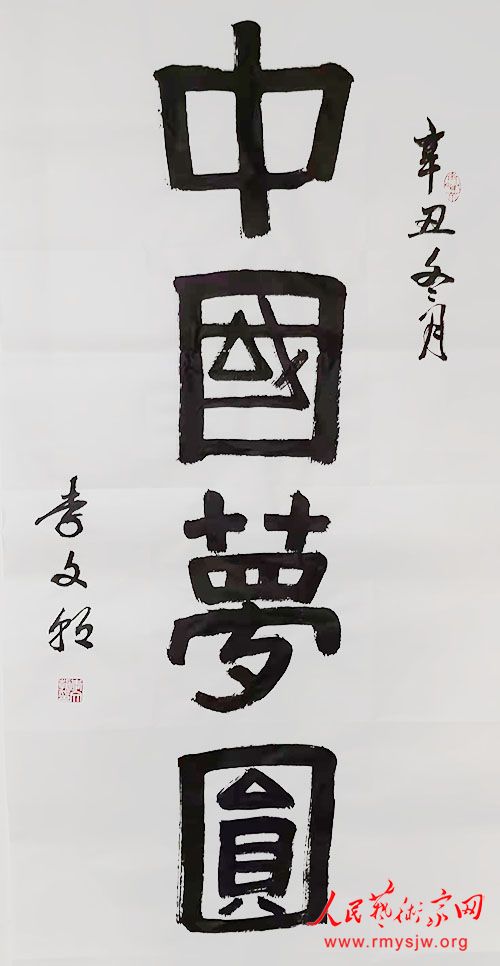 辛丑冬月
中國夢圓
李文
人民藝術家网
www.rmysjw.org